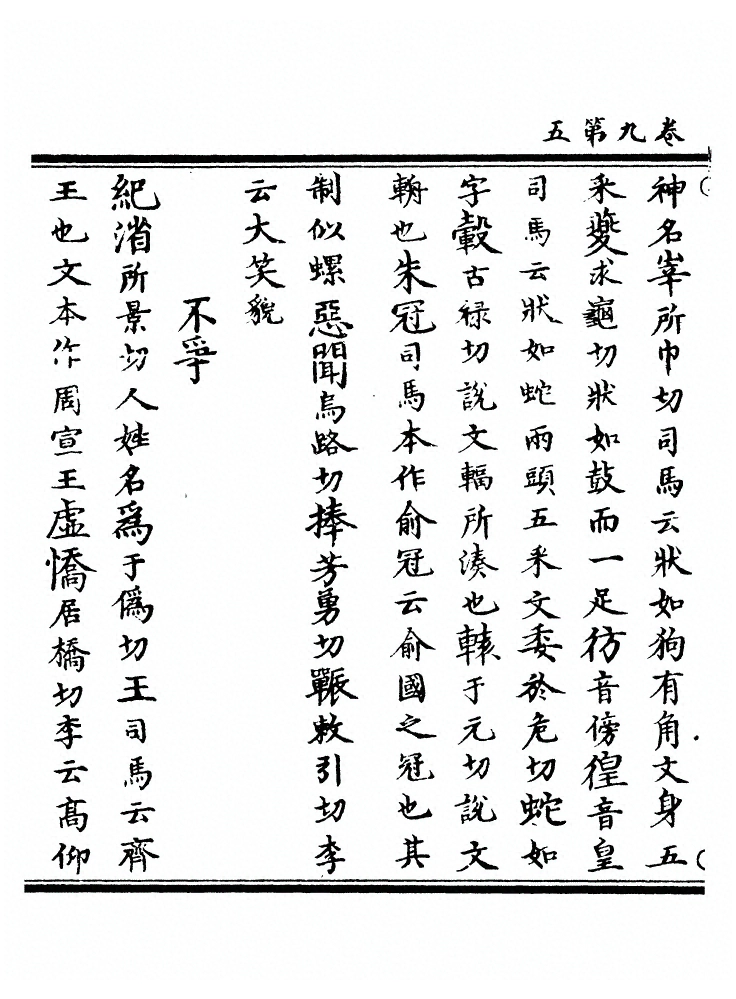 卷九第五
神名峷所巾切司馬云狀如狗有角文身五
采夔求龜切狀如鼓而一足彷音傍徨音皇
司馬云狀如蛇兩頭五采文委於危切蛇如
字轂古禄切說文輻所湊也轅于元切說文
輈也朱冠司馬本作俞冠云俞國之冠也其
制似螺惡聞烏路切捧芳勇切辴敕引切李
云大笑貌
不爭
紀渻所景切人姓名爲于僞切王司馬云齊
王也文本作周宣王虛憍居橋切李云髙仰